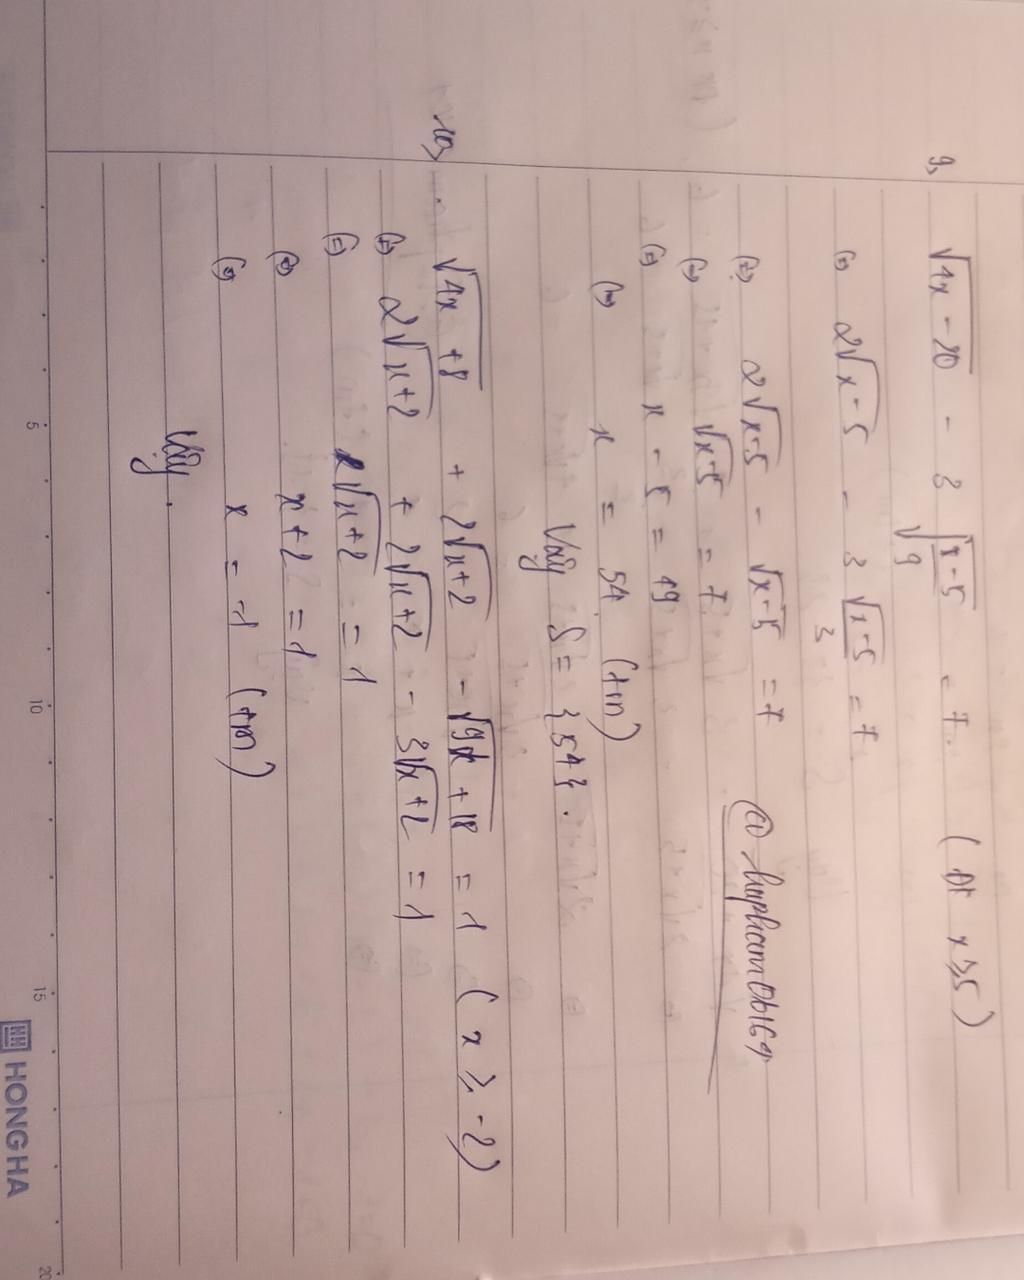 9, √(4x - 20) - 3 √((x-5)/9) = 7 (ĐK x ≥ 5)
(=) 2√(x-5) - 3 √(x-5)/3 = 7
(=) 2√(x-5) - √(x-5) = 7
(=) √(x-5) = 7
(=) x - 5 = 49
(=) x = 54 (tm)
Vậy S = {54}.
10, √(4x + 8) + 2√(x+2) - √(9x + 18) = 1 (x ≥ -2)
(=) 2√(x+2) + 2√(x+2) - 3√(x+2) = 1
(=) √(x+2) = 1
(=) x + 2 = 1
(=) x = -1 (tm)
Vậy.
5
10
15
20
HONG HA